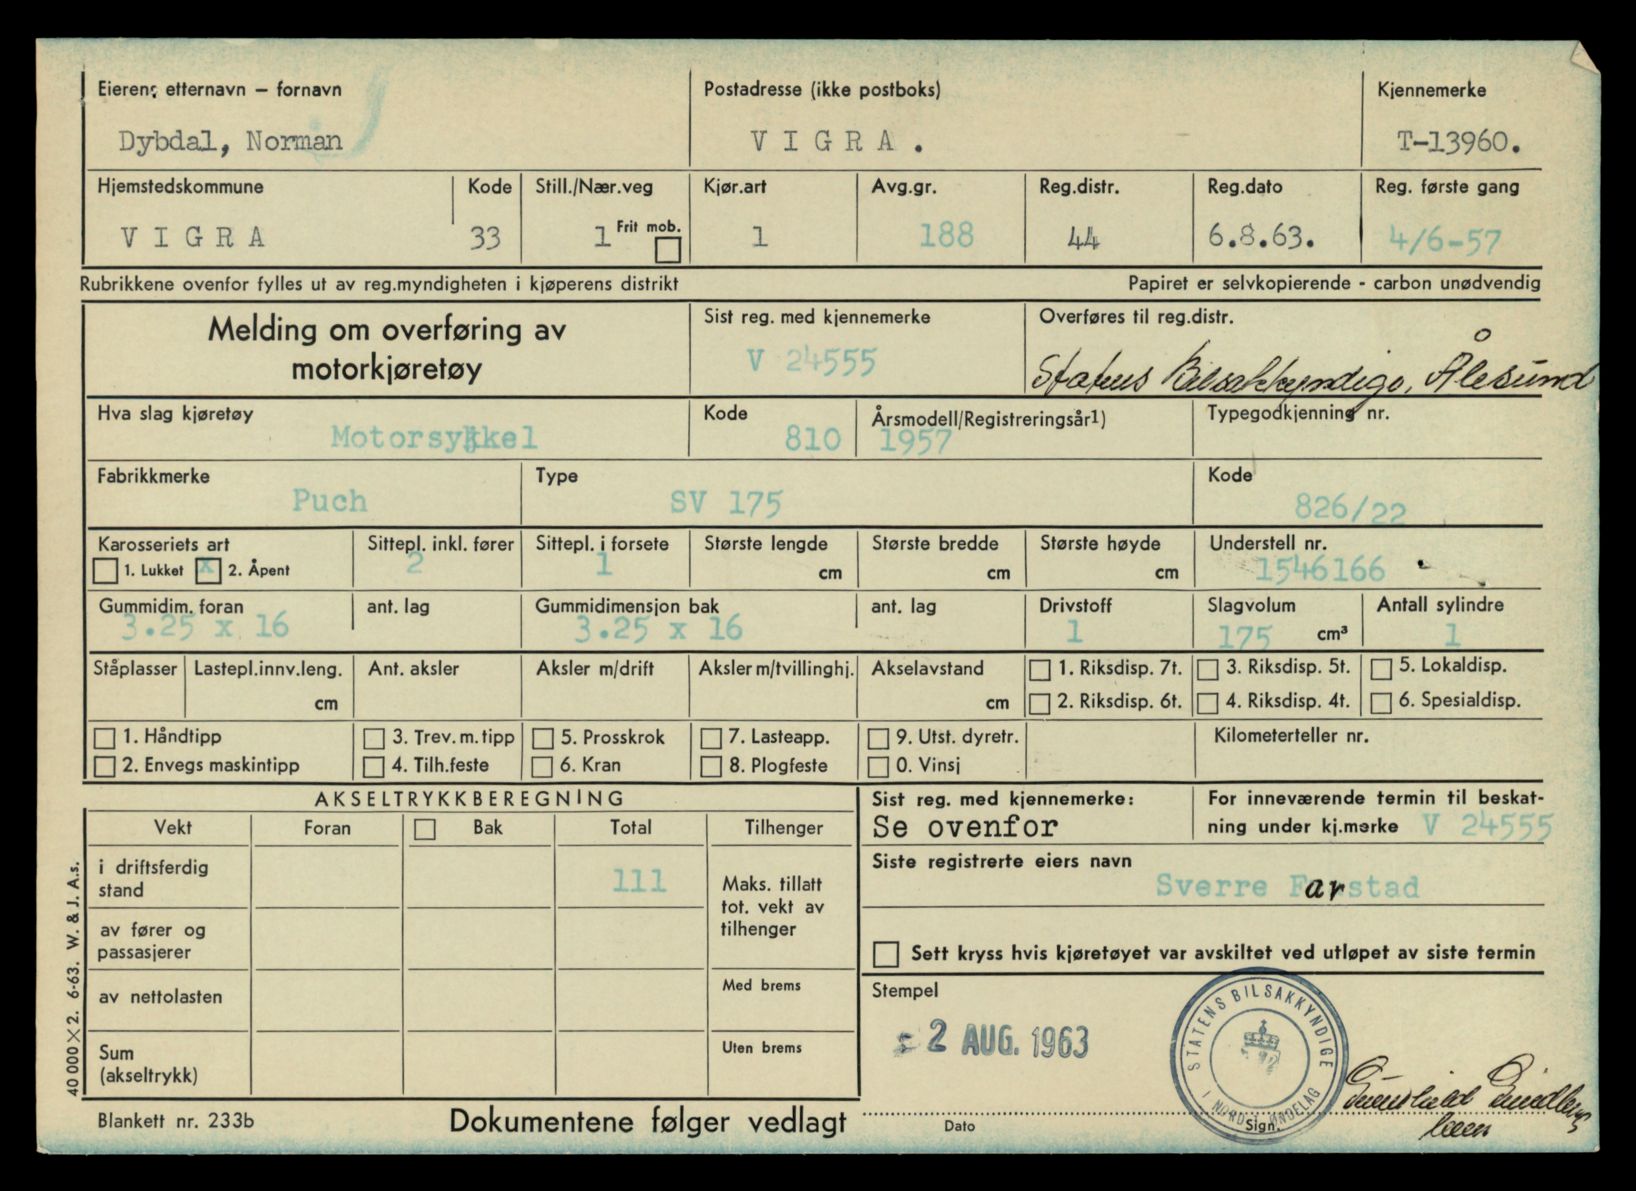 Eierens etternavn – fornavn
Dybdal, Norman
Postadresse (ikke postboks)
V I G R A .
Kjennemerke
T-13960.
Hjemstedskommune
V I G R A
Kode
33
Still./Nær.veg
1 Frit mob.
Kjør.art
1
Avg.gr.
188
Reg.distr.
44
Reg.dato
6.8.63.
Reg. første gang
4/6-57
Rubrikkene ovenfor fylles ut av reg.myndigheten i kjøperens distrikt
Papiret er selvkopierende - carbon unødvendig
Melding om overføring av
motorkjøretøy
Sist reg. med kjennemerke
V 24555
Overføres til reg.distr.
Statens Bilsakkyndige, Ålesund
Hva slag kjøretøy
Motorsykkel
Kode
810
Årsmodell/Registreringsår1)
1957
Typegodkjenning nr.
Fabrikkmerke
Puch
Type
SV 175
Kode
826/22
Karosseriets art
1. Lukket x 2. Åpent
Sittepl. inkl. fører
2
Sittepl. i forsete
1
Største lengde
cm
Største bredde
cm
Største høyde
cm
Understell nr.
1546166
Gummidim. foran
3.25 x 16
ant. lag
Gummidimensjon bak
3.25 x 16
ant. lag
Drivstoff
1
Slagvolum
175 cm³
Antall sylindre
1
Ståplasser
Lastepl.innv.leng.
cm
Ant. aksler
Aksler m/drift
Aksler m/tvillinghj.
Akselavstand
cm
1. Riksdisp. 7t.
2. Riksdisp. 6t.
3. Riksdisp. 5t.
4. Riksdisp. 4t.
5. Lokaldisp.
6. Spesialdisp.
1. Håndtipp
2. Envegs maskintipp
3. Trev. m. tipp
4. Tilh.feste
5. Prosskrok
6. Kran
7. Lasteapp.
8. Plogfeste
9. Utst. dyretr.
0. Vinsj
Kilometerteller nr.
AKSELTRYKKBEREGNING
Vekt
Foran
Bak
Total
Tilhenger
i driftsferdig
stand
111
av fører og
passasjerer
av nettolasten
Sum
(akseltrykk)
Maks. tillatt
tot. vekt av
tilhenger
Med brems
Uten brems
Sist reg. med kjennemerke:
Se ovenfor
For inneværende termin til beskat-
ning under kj.merke V 24555
Siste registrerte eiers navn
Sverre Farstad
Sett kryss hvis kjøretøyet var avskiltet ved utløpet av siste termin
Stempel
2 AUG. 1963
STATENS BILSAKKYNDIGE
I NORDS.ØNDELAG
Dato
Sign.
40 000 X 2. 6-63. W. & J. A.s.
Blankett nr. 233b
Dokumentene følger vedlagt